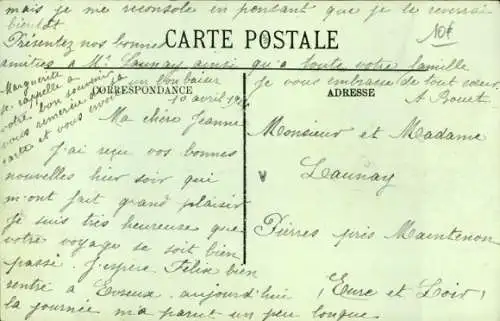 CARTE POSTALE
CORRESPONDANCE
10 avril
Ma chère Jeanne
J'ai reçu vos bonnes
nouvelles hier soir qui
m'ont fait grand plaisir
je suis très heureuse que
votre voyage se soit bien
passé. J'espère Félix bien
rentré à Evreux. aujourd'hui
la journée m'a parut un peu longue
mais je me reconsole en pensant que je te reverrai
bientôt
Présentez nos bonnes
amitiés à Mr Launay ainsi qu'à toute votre famille
je vous embrasse de tout cœur
A Bouet
Marguerite
se rappelle à
votre bon souvenir
vous remercie de la
carte et vous envoi
un bon baiser
ADRESSE
Monsieur et Madame
Launay
Pierres près Maintenon
(Eure et Loir)
10€